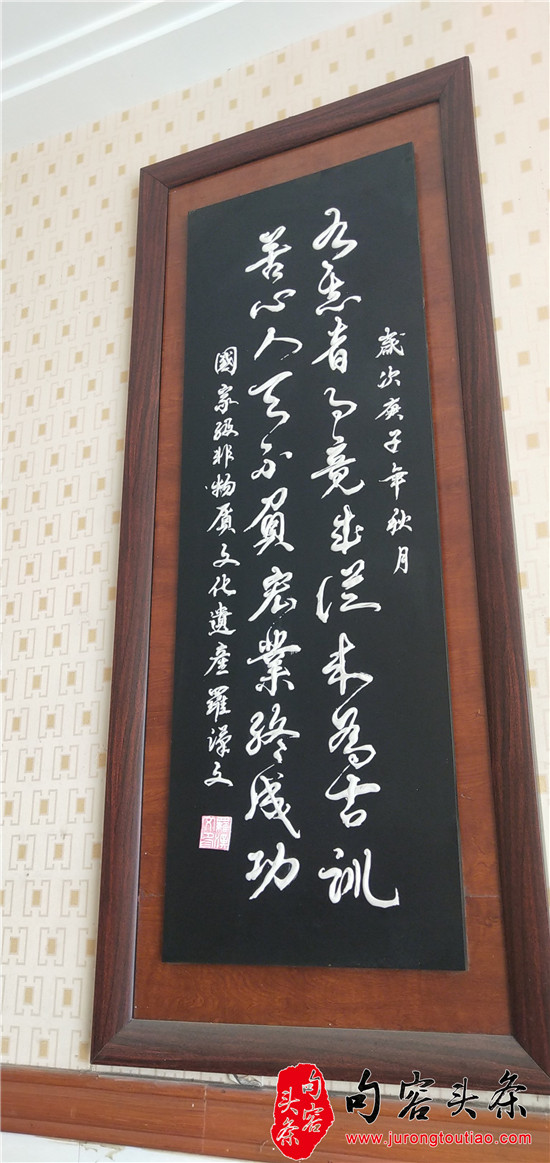 歲次庚子年秋月
有志者事竟成從来為古訓
苦心人天不負宏業終成功
國家級非物質文化遺産羅漢文
句容头条
句容头条
www.jurongtoutiao.com